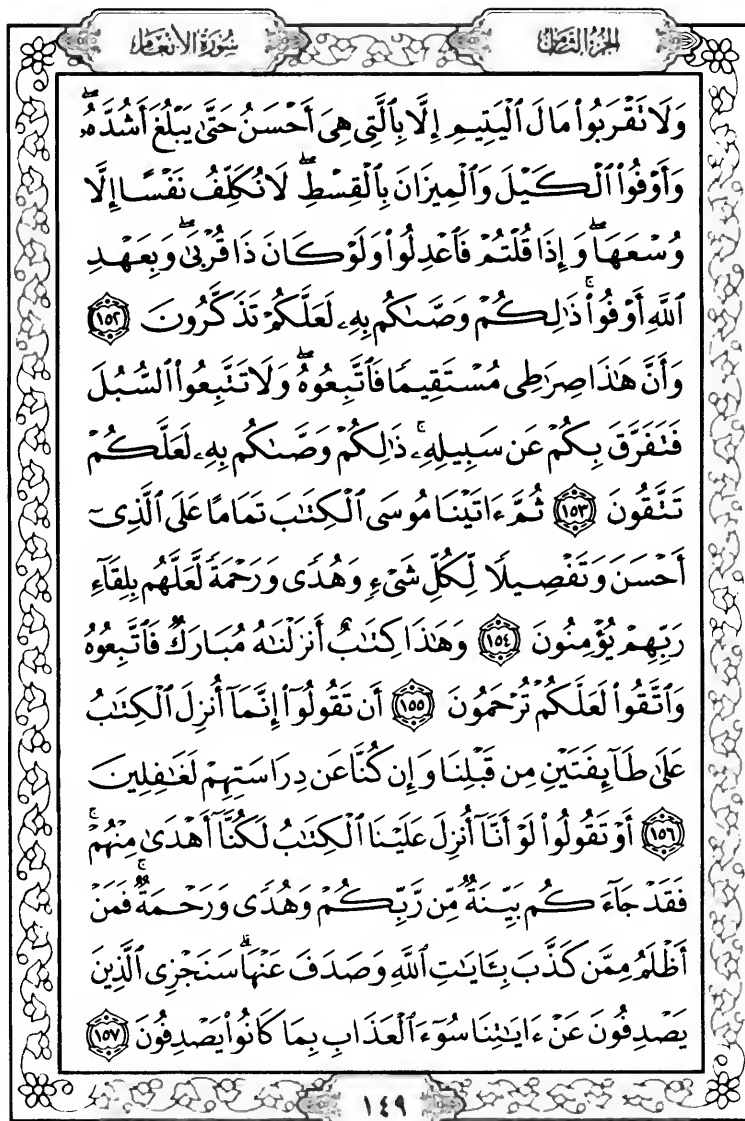 سُورَةُ الأَنْعَامِ
الجُزْءُ الثَّامِنُ
وَلَا تَقْرَبُوا۟ مَالَ ٱلْيَتِيمِ إِلَّا بِٱلَّتِى هِىَ أَحْسَنُ حَتَّىٰ يَبْلُغَ أَشُدَّهُۥ ۖ
وَأَوْفُوا۟ ٱلْكَيْلَ وَٱلْمِيزَانَ بِٱلْقِسْطِ ۖ لَا نُكَلِّفُ نَفْسًا إِلَّا
وُسْعَهَا ۖ وَإِذَا قُلْتُمْ فَٱعْدِلُوا۟ وَلَوْ كَانَ ذَا قُرْبَىٰ ۖ وَبِعَهْدِ
ٱللَّهِ أَوْفُوا۟ ۚ ذَٰلِكُمْ وَصَّىٰكُم بِهِۦ لَعَلَّكُمْ تَذَكَّرُونَ ١٥٢
وَأَنَّ هَٰذَا صِرَٰطِى مُسْتَقِيمًا فَٱتَّبِعُوهُ ۖ وَلَا تَتَّبِعُوا۟ ٱلسُّبُلَ
فَتَفَرَّقَ بِكُمْ عَن سَبِيلِهِۦ ۚ ذَٰلِكُمْ وَصَّىٰكُم بِهِۦ لَعَلَّكُمْ
تَتَّقُونَ ١٥٣ ثُمَّ ءَاتَيْنَا مُوسَى ٱلْكِتَٰبَ تَمَامًا عَلَى ٱلَّذِىٓ
أَحْسَنَ وَتَفْصِيلًا لِّكُلِّ شَىْءٍ وَهُدًى وَرَحْمَةً لَّعَلَّهُم بِلِقَآءِ
رَبِّهِمْ يُؤْمِنُونَ ١٥٤ وَهَٰذَا كِتَٰبٌ أَنزَلْنَٰهُ مُبَارَكٌ فَٱتَّبِعُوهُ
وَٱتَّقُوا۟ لَعَلَّكُمْ تُرْحَمُونَ ١٥٥ أَن تَقُولُوٓا۟ إِنَّمَآ أُنزِلَ ٱلْكِتَٰبُ
عَلَىٰ طَآئِفَتَيْنِ مِن قَبْلِنَا وَإِن كُنَّا عَن دِرَاسَتِهِمْ لَغَٰفِلِينَ
١٥٦ أَوْ تَقُولُوا۟ لَوْ أَنَّآ أُنزِلَ عَلَيْنَا ٱلْكِتَٰبُ لَكُنَّآ أَهْدَىٰ مِنْهُمْ ۚ
فَقَدْ جَآءَكُم بَيِّنَةٌ مِّن رَّبِّكُمْ وَهُدًى وَرَحْمَةٌ ۚ فَمَنْ
أَظْلَمُ مِمَّن كَذَّبَ بِـَٔايَٰتِ ٱللَّهِ وَصَدَفَ عَنْهَا ۗ سَنَجْزِى ٱلَّذِينَ
يَصْدِفُونَ عَنْ ءَايَٰتِنَا سُوٓءَ ٱلْعَذَابِ بِمَا كَانُوا۟ يَصْدِفُونَ ١٥٧
١٤٩